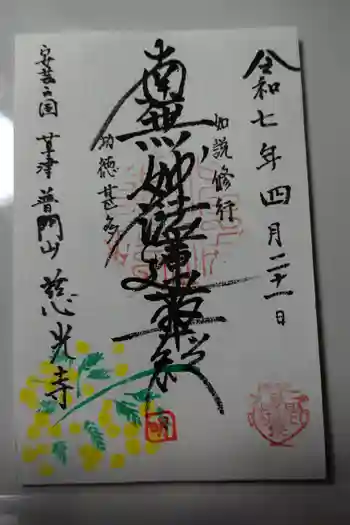 令和七年四月二十一日
如説修行
南無妙法蓮華経
功徳甚多
安芸之国 草津 普門山 慈光寺